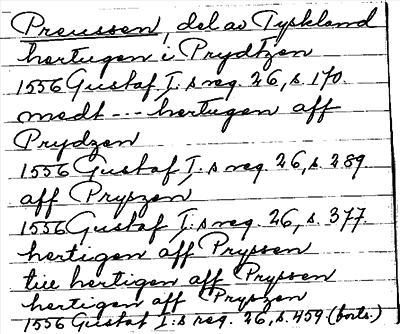 Preussen, del av Tyskland
hertugen i Prydtzen
1556 Gustaf I:s reg. 26, s. 170.
medt --- hertugen aff
Prydzen
1556 Gustaf I:s reg. 26, s. 289
aff Pryszen
1556 Gustaf I:s reg. 26, s. 377.
hertigen aff Pryssen
tiie hertigen aff Pryssen
hertigen aff Pryszen
1556 Gustaf I:s reg. 26, s. 459 (forts.)